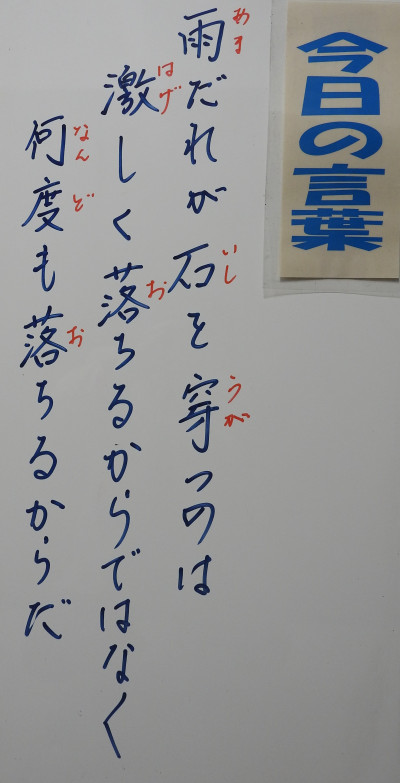 今日の言葉
雨だれが石を穿つのは
激しく落ちるからではなく
何度も落ちるからだ
あま
いし
うが
はげ
お
なん
ど
お